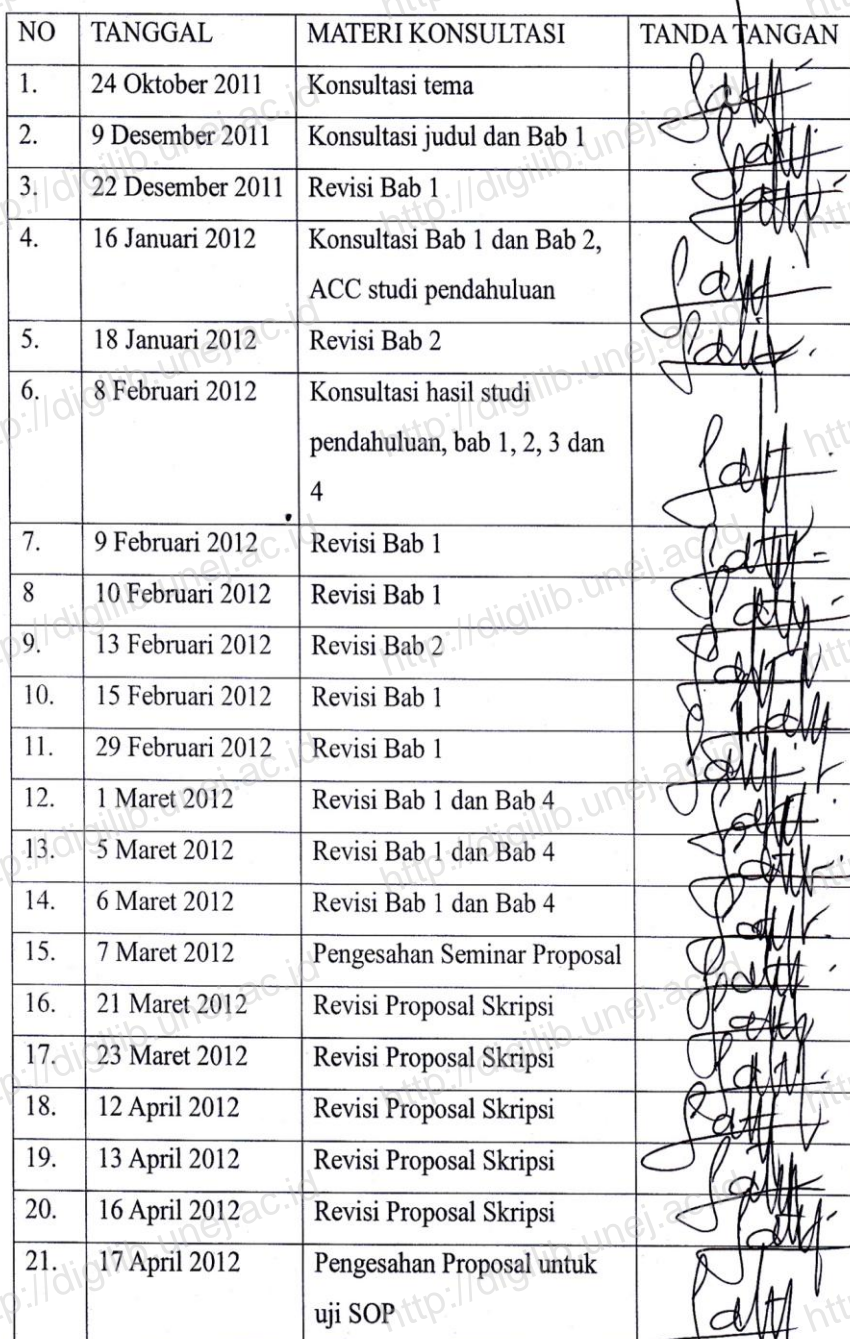 NO TANGGAL MATERI KONSULTASI TANDA TANGAN
1. 24 Oktober 2011 Konsultasi tema
2. 9 Desember 2011 Konsultasi judul dan Bab 1
3. 22 Desember 2011 Revisi Bab 1
4. 16 Januari 2012 Konsultasi Bab 1 dan Bab 2,
ACC studi pendahuluan
5. 18 Januari 2012 Revisi Bab 2
6. 8 Februari 2012 Konsultasi hasil studi
pendahuluan, bab 1, 2, 3 dan
4
7. 9 Februari 2012 Revisi Bab 1
8 10 Februari 2012 Revisi Bab 1
9. 13 Februari 2012 Revisi Bab 2
10. 15 Februari 2012 Revisi Bab 1
11. 29 Februari 2012 Revisi Bab 1
12. 1 Maret 2012 Revisi Bab 1 dan Bab 4
13. 5 Maret 2012 Revisi Bab 1 dan Bab 4
14. 6 Maret 2012 Revisi Bab 1 dan Bab 4
15. 7 Maret 2012 Pengesahan Seminar Proposal
16. 21 Maret 2012 Revisi Proposal Skripsi
17. 23 Maret 2012 Revisi Proposal Skripsi
18. 12 April 2012 Revisi Proposal Skripsi
19. 13 April 2012 Revisi Proposal Skripsi
20. 16 April 2012 Revisi Proposal Skripsi
21. 17 April 2012 Pengesahan Proposal untuk
uji SOP
http://digilib.unej.ac.id